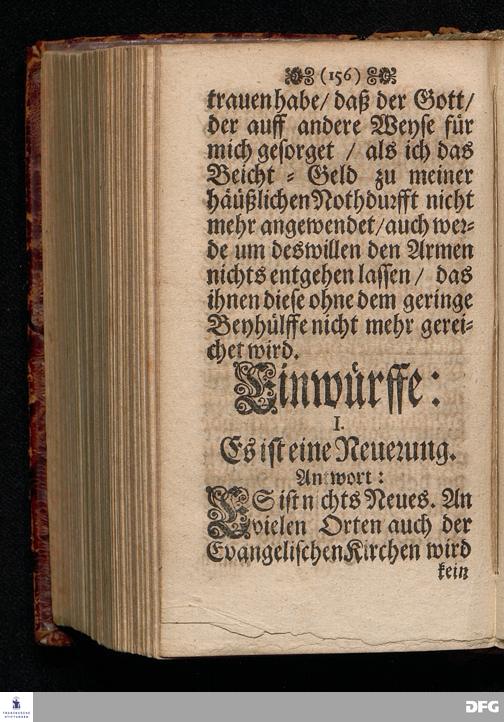 (156)
trauen habe/ daß der Gott/
der auff andere Weyse für
mich gesorget / als ich das
Beicht = Geld zu meiner
häüßlichen Nothdurfft nicht
mehr angewendet/ auch wer=
de um deswillen den Armen
nichts entgehen lassen/ das
ihnen diese ohne dem geringe
Beyhülffe nicht mehr gerei=
chet wird.
Einwürffe:
I.
Es ist eine Neuerung.
Antwort:
ES ist nichts Neues. An
vielen Orten auch der
Evangelischen Kirchen wird
kein
FRANCKESCHE
STIFTUNGEN
DFG